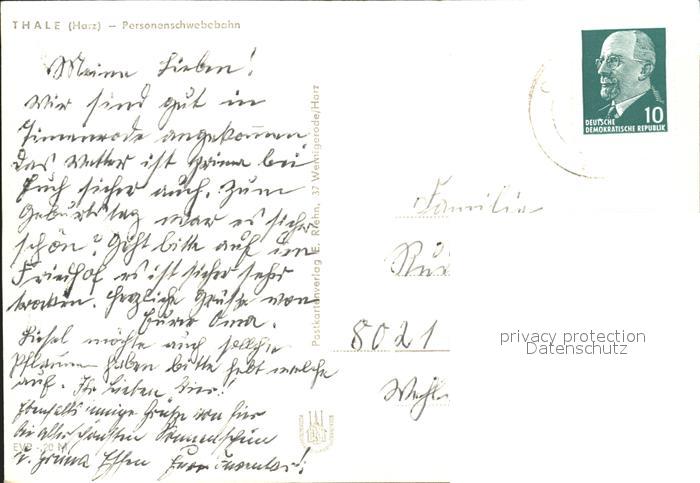 THALE (Harz) – Personenschwebebahn
Meine Lieben!
Wir sind gut in
Timmenrode angekommen.
Das Wetter ist prima bei
Euch sicher auch. Zum
Geburtstag war es sicher
schön? Geht bitte auf im
Friedhof es ist sicher sehr
trocken. Herzliche Grüße von
Eurer Oma.
Liesel möchte auch solche
Pflaumen haben bitte hebt welche
auf. Ihr Lieben hier!
Ebenfalls innige Grüße von hier
bei allerschönsten Sonnenschein
u. Essen
EVP - 20 M
Postkartenverlag E. Riehn, 37 Wernigerode/Harz
10
DEUTSCHE
DEMOKRATISCHE REPUBLIK
Familie
8021
privacy protection
Datenschutz